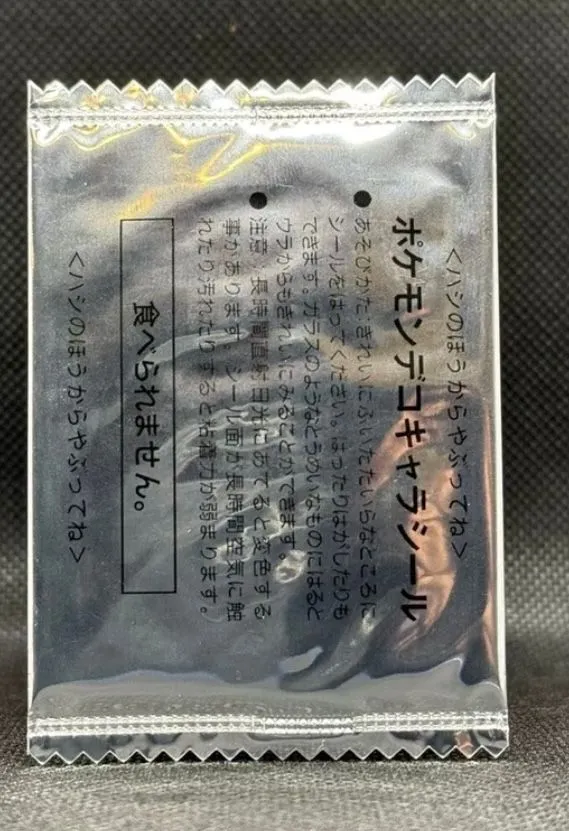 <ハシのほうからやぶってね>
ポケモンデコキャラシール
●あそびかた:きれいにふいたたいらなところに
シールをはってください。はったりはがしたりも
できます。ガラスのようなとうめいなものにはると
ウラからもきれいにみることができます。
●注意:長時間直射日光にあてると変色する
事があります。シール面が長時間空気に触
れたり汚れたりすると粘着力が弱まります。
食べられません。
<ハシのほうからやぶってね>